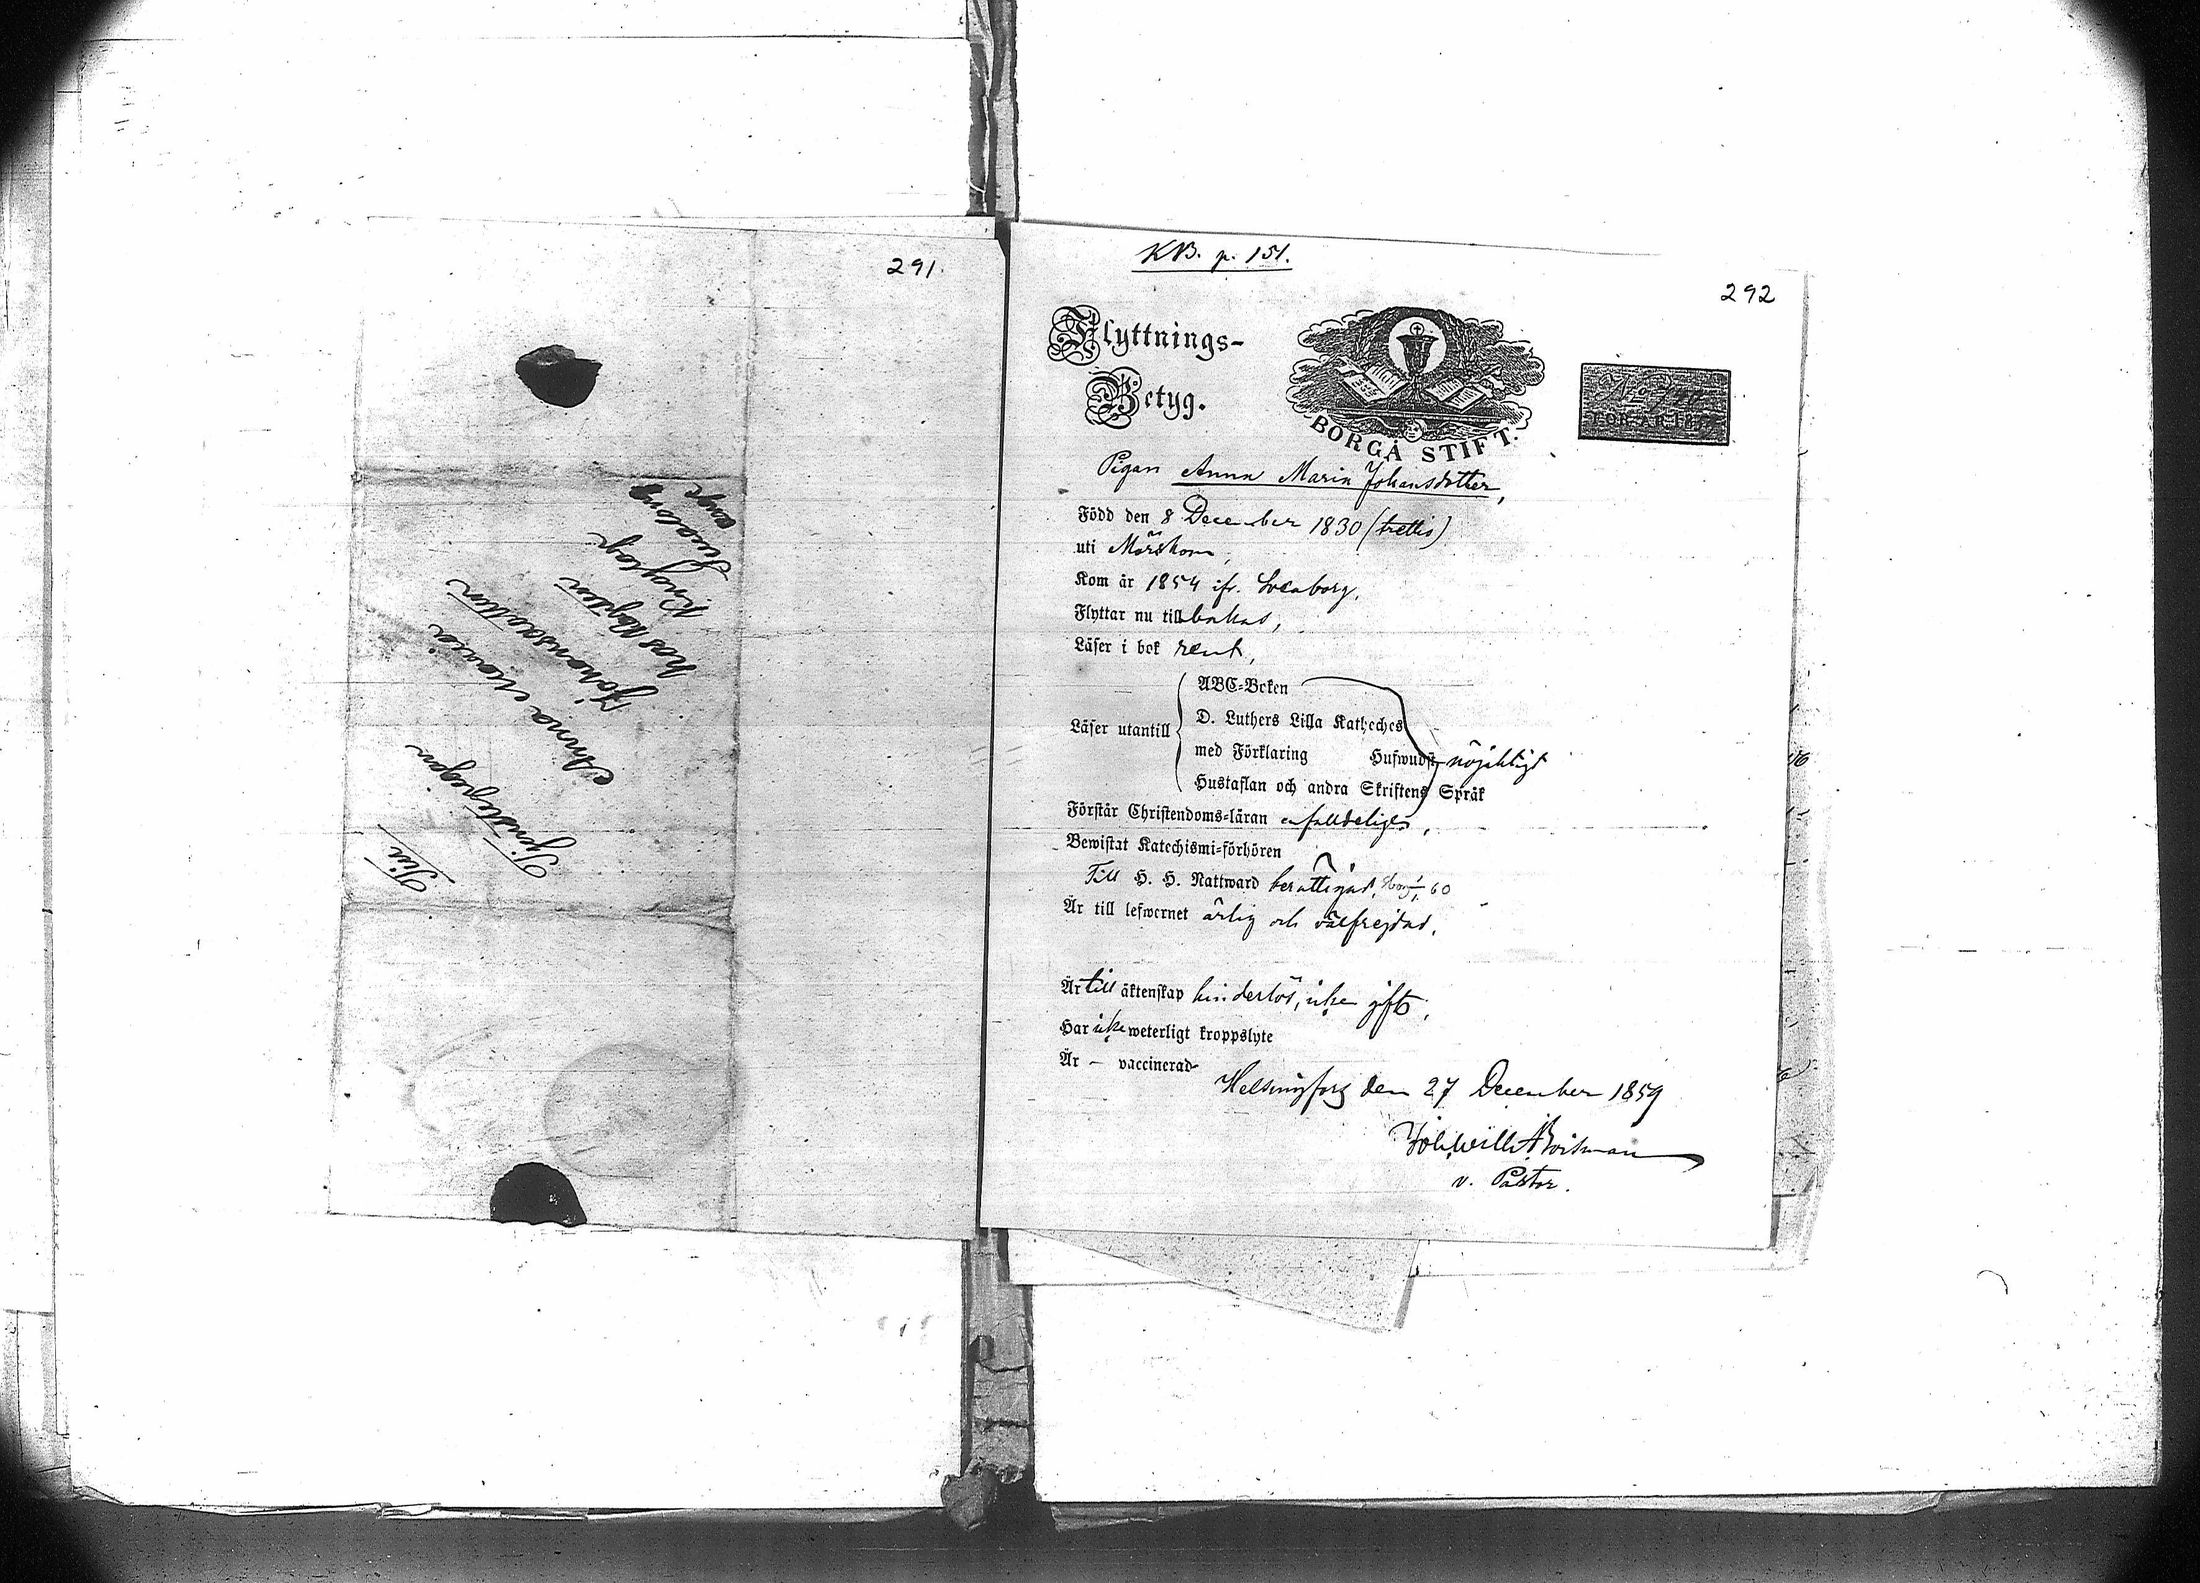 291.
Till
Tjenstepigan
Anna Maria
Johansdotter
hos
KB. p. 151.
292
Flyttnings-
Betyg.
BORGÅ STIFT.
Pigan Anna Maria Johansdotter,
Född den 8 December 1830 (trettio)
uti Mörskom,
Kom år 1854 ifr. Sveaborg.
Flyttar nu tillbakas,
Läser i bok rent,
ABC-Boken
Läser utantill
D. Luthers Lilla Katheches
med Förklaring Hufwudst. nöjaktigt
Hustaflan och andra Skriftens Språk
Förstår Christendoms-läran enfaldeligen,
Bewistat Katechismi-förhören
Till H. H. Nattward berättigad, 60
Är till lefwernet ärlig och välfrejdad.
Är till äktenskap hinderlös, icke gift,
Har icke weterligt kroppslyte
Är — vaccinerad
Helsingfors den 27 December 1859
Joh. Wilh.
v. Pastor.